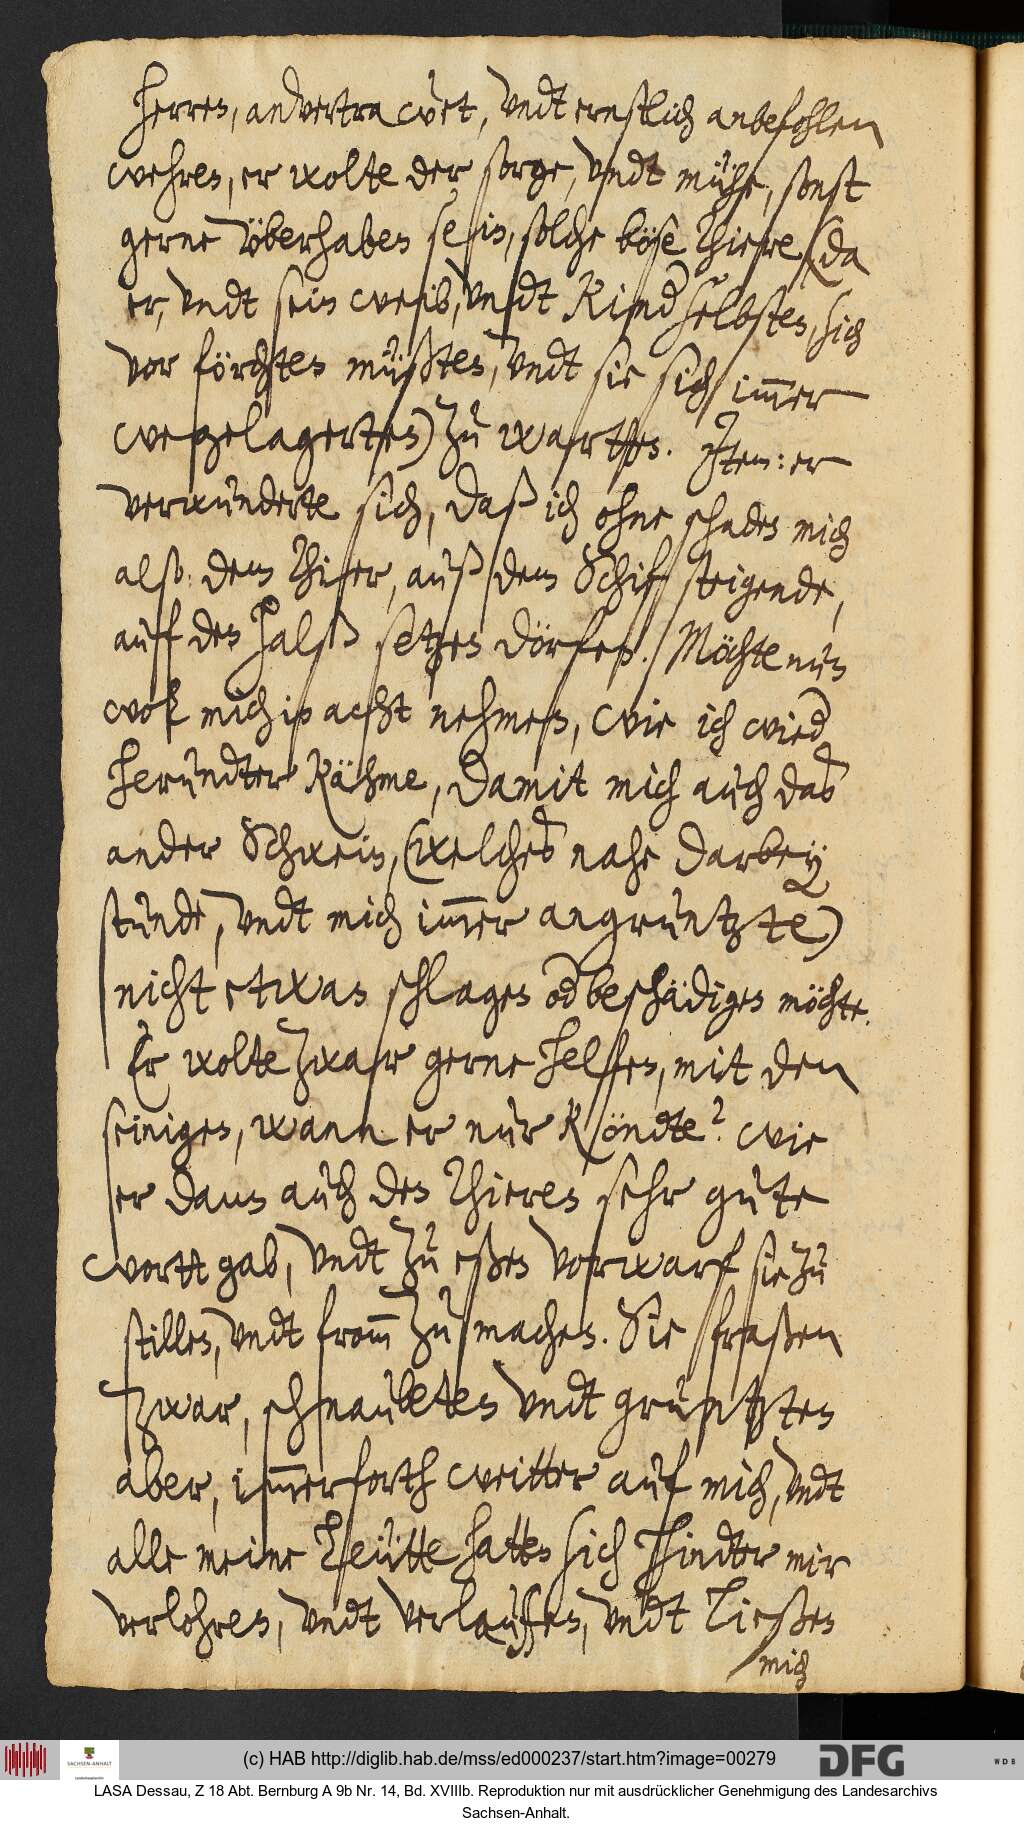 Herren, andvertrawet, undt ernstlich anbefohlen
wehren, er wolte der sorge, undt mühe, sonst
gerne überhaben sein, solche böse Thiere (da
er, undt sein weib, undt Kind selbsten, sich
vor förchten müßten, undt sie sich immer
wegelagerten) zu warthen. Item: er
verwunderte sich, daß ich ohne schaden mich
also dem Thier, auß dem Schif steigende,
auff den Halß setzen dörfen. Möchte nun
wol mich in acht nehmen, wie ich wied
herundter kähme, damit mich auch das
ander Schwein, (welches nahe darbey
stunde, undt mich immer angruntzte)
nicht etwan schlagen od beschädigen möchte.
Er wolte zwar gerne helffen, mit den
seinigen, wann er nur köndte? wie
er dann auch den Thieren sehr gute
wortt gab, undt zu eßen vorwarf sie zu
stillen, undt from̅ zu machen. Sie fraßen
zwar, schnaubeten undt gruntzten
aber, im̅erforth weitter auf mich, undt
alle meine Leütte hatten sich hindter mir
verlohren, undt verlauffen, undt ließen
mich
(c) HAB http://diglib.hab.de/mss/ed000237/start.htm?image=00279
SACHSEN-ANHALT
DFG
WDB
LASA Dessau, Z 18 Abt. Bernburg A 9b Nr. 14, Bd. XVIIIb. Reproduktion nur mit ausdrücklicher Genehmigung des Landesarchivs
Sachsen-Anhalt.